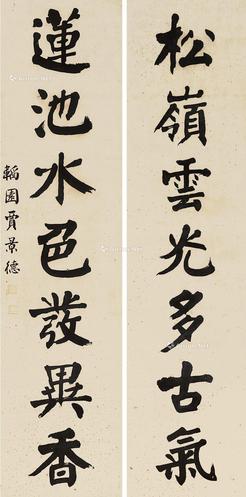 松嶺雲光多古氣
蓮池水色發異香
韜園賈景德